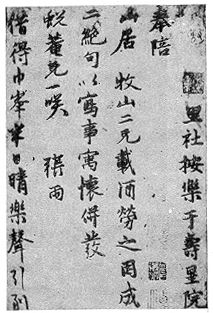 里社按樂于壽星院
奉陪
山居 牧山二兄載酒勞之因成
二絕句以寫事寓懷併發
兄一咲 雨
借得巾峯半日晴樂聲引